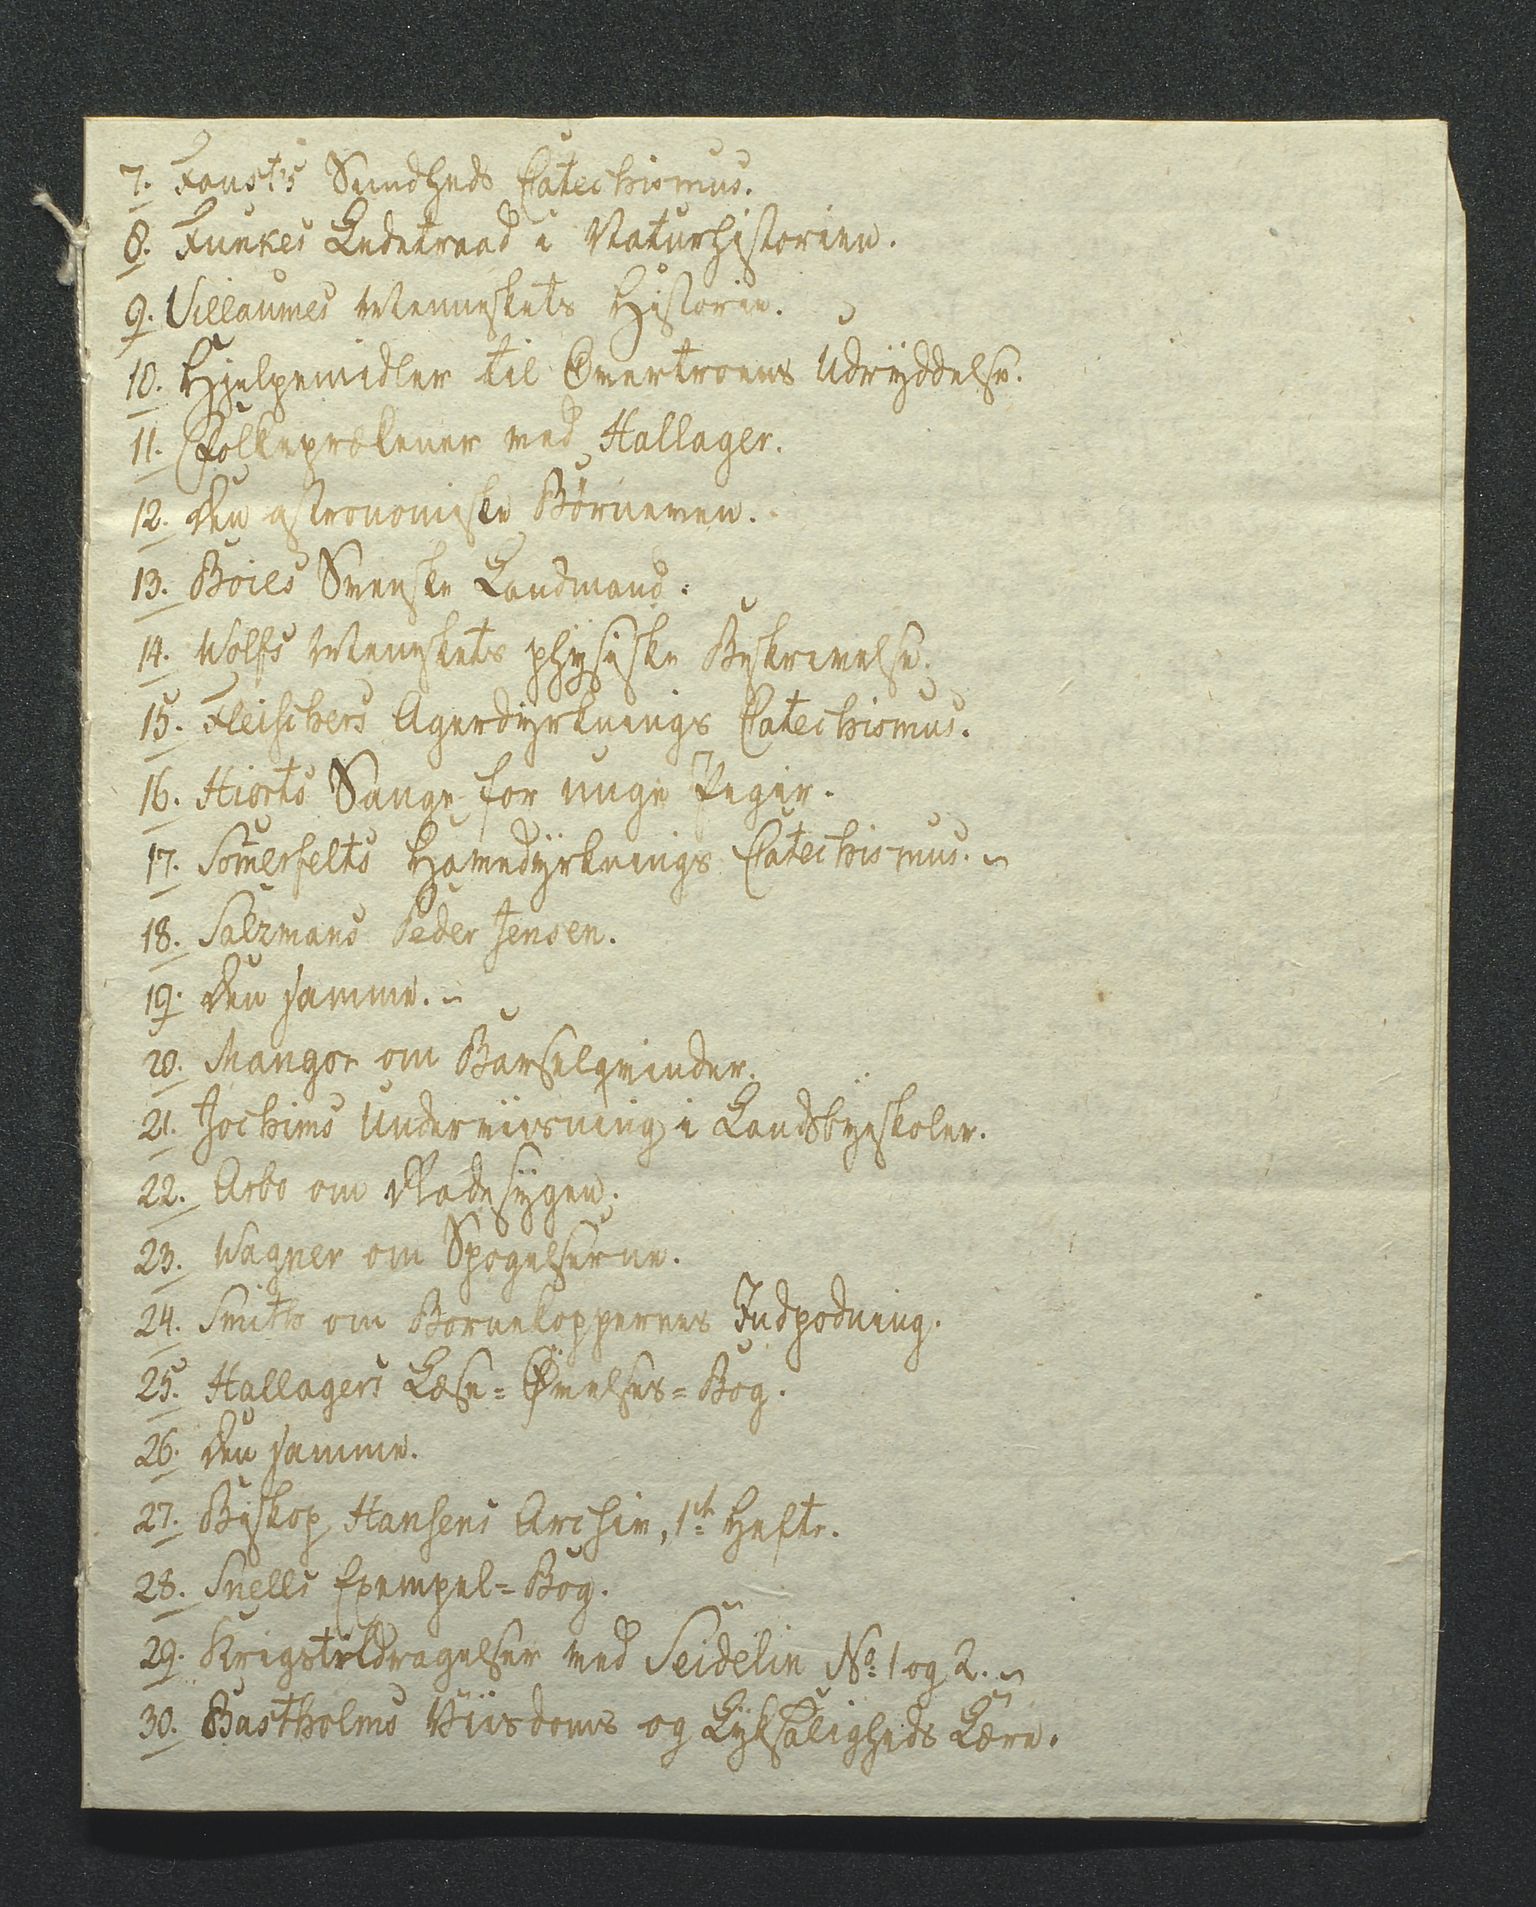 7. Faust's Sundheds Catechismus.
8. Funkes Ledetraad i Naturhistorien.
9. Villaumes Menneskets Historie.
10. Hjelpemidler til Overtroens Udrÿddelse.
11. Folkeprækener ved Hallager.
12. Den astronomiske Børneven.
13. Boies Svenske Landmand.
14. Wolfs Meneskets phÿsiske Beskrivelse.
15. Fleischers Agerdÿrknings Catechismus.
16. Hiorts Sange for unge Piger.
17. Som̄erfelts Havedÿrknings Catechismus.
18. Salzmans Peder Jensen.
19. Den samme.
20. Mangor om Barselqvinder.
21. Jochims Underviisning i Landsbÿeskoler.
22. Arbo om Radesÿgen.
23. Wagner om Spøgelserne.
24. Smith om Bornekoppernes Indpodning.
25. Hallagers Læse=Øvelses=Bog.
26. Den samme.
27. Biskop Hansens Archiv, 1ste Hefte.
28. Snells Exempel=Bog.
29. Krigstildragelser ved Seidelin No: 1 og 2.
30. Bastholms Viisdoms og Lÿksaligheds Lære.